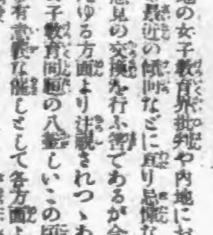 地の女子敎育界批判や內地にお
最近の傾向などに亘り忌憚な
意見の交換を行ふ筈であるが今
ゆる方面より注視されつゝあ
子敎育問題の八釜しいこの頃
有意義な催しとして各方面よ